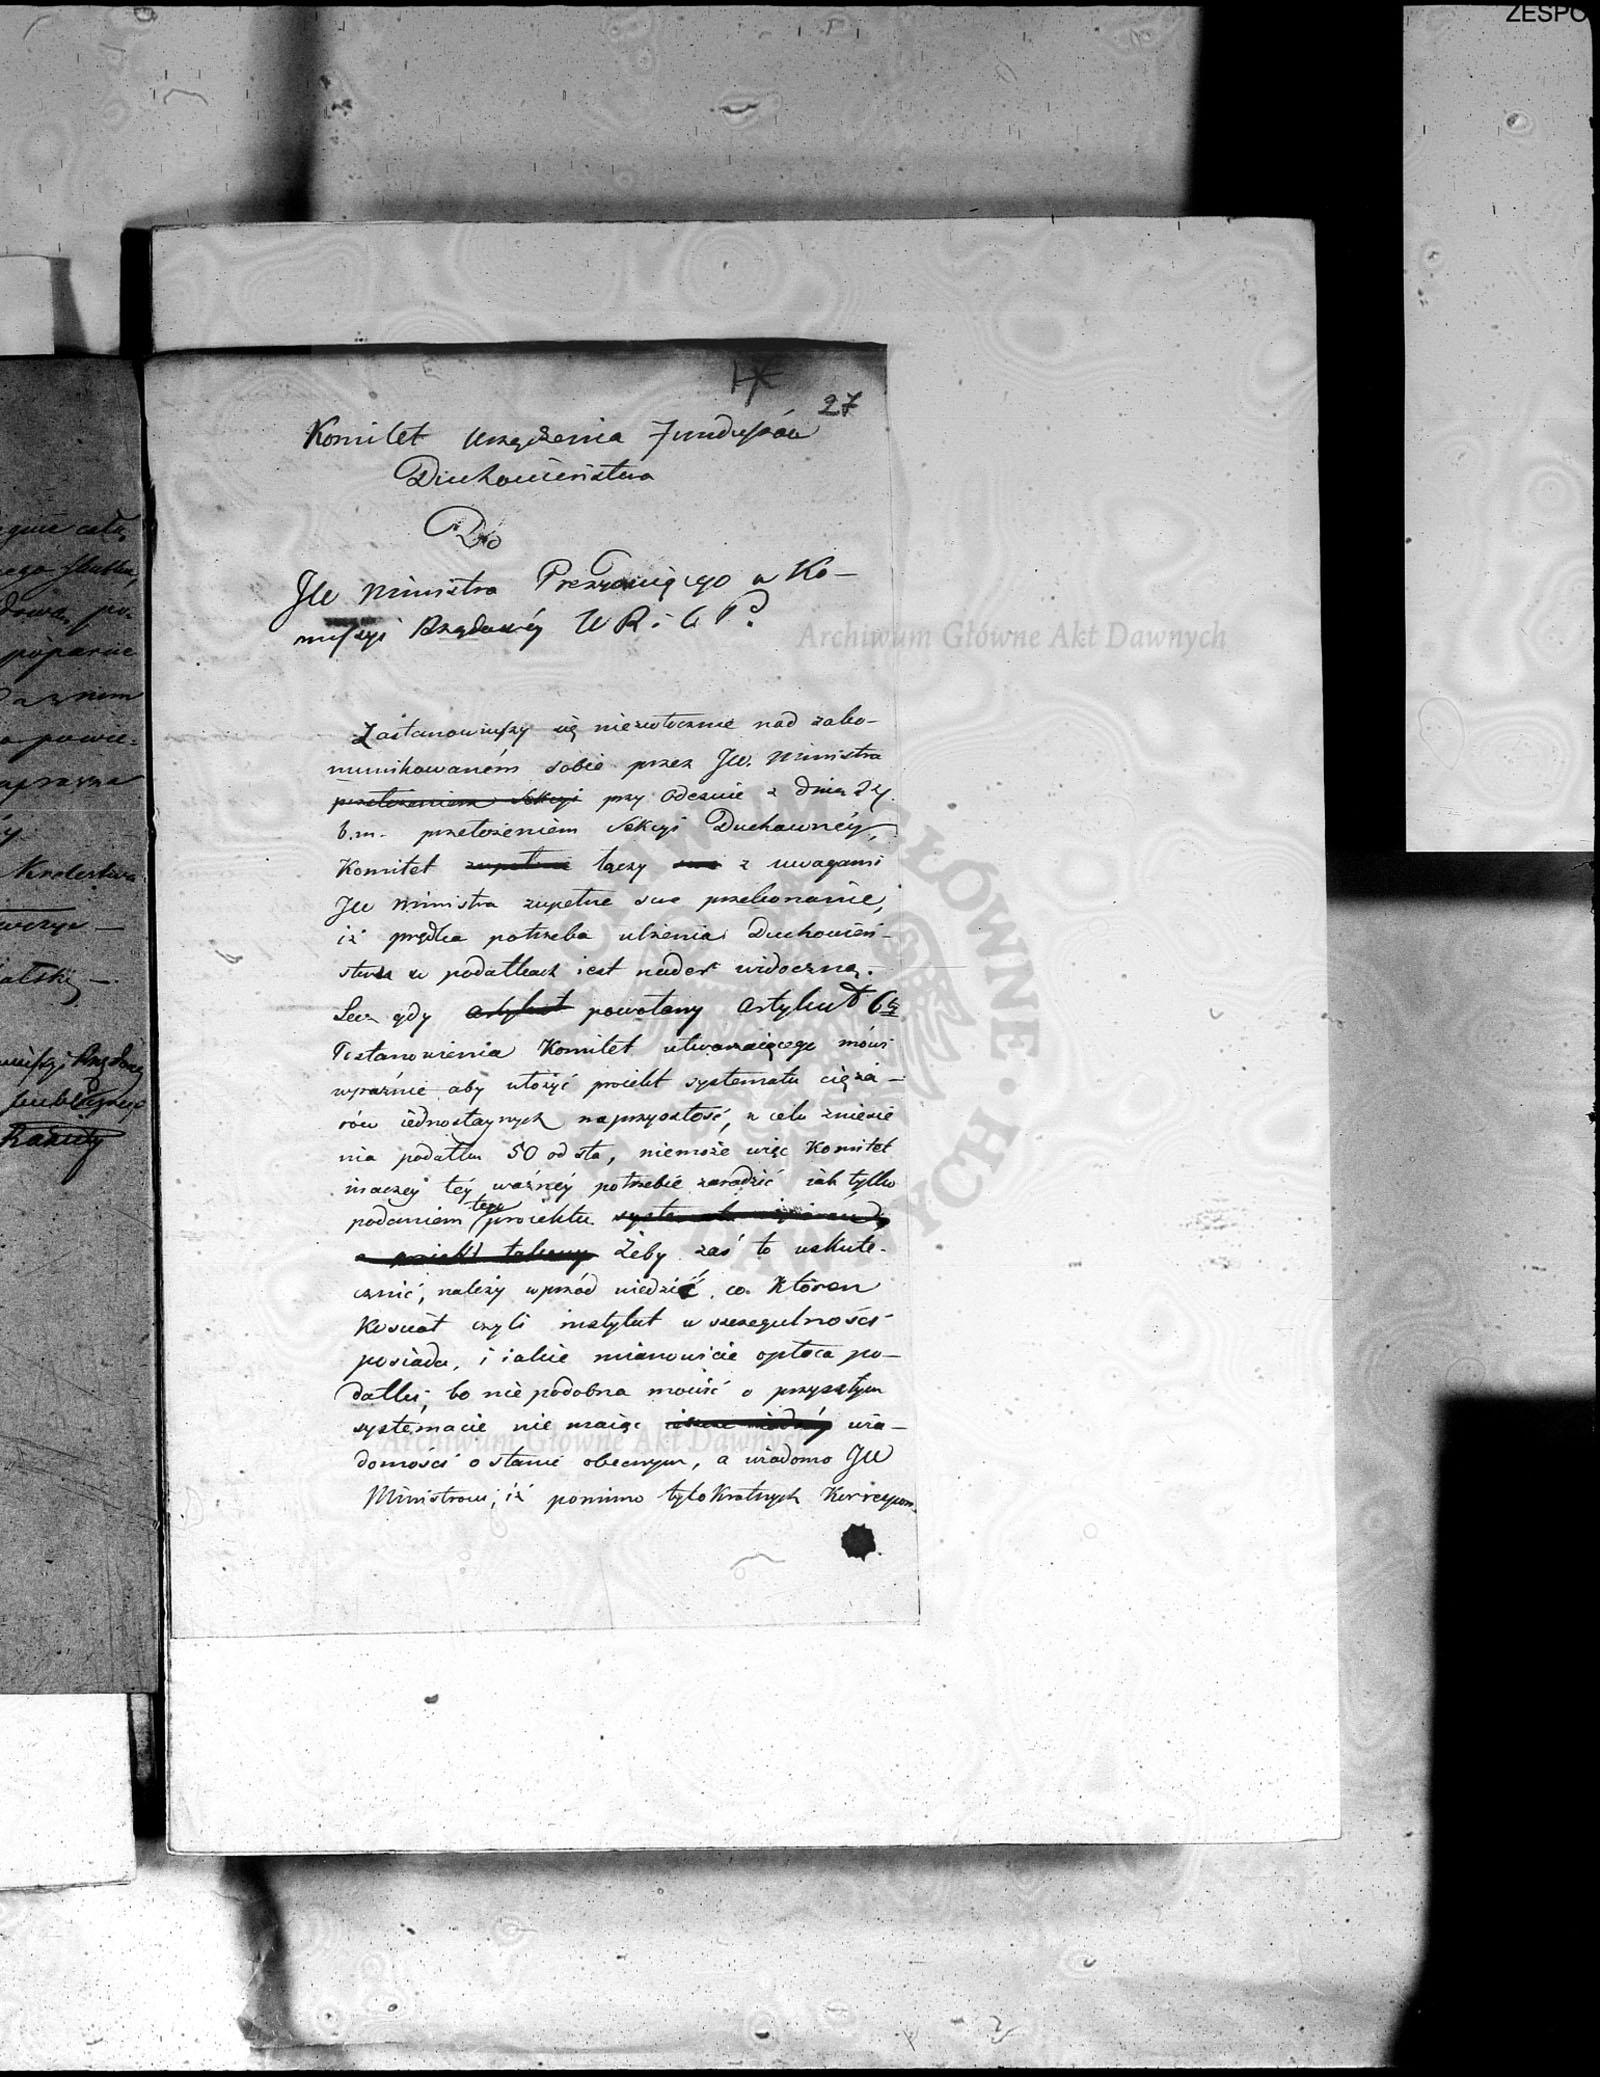 ZESPO
27
Komitet urządzenia Funduszów
Duchowieństwa
Do
JW Ministra Prezyduiącego w Ko-
missyi Rządowéy W R i O P.
Archiwum Główne Akt Dawnych
Zastanowiwszy się niezwłocznie nad zako-
munikowaném sobie przez JW. Ministra
przełożeniem Sekcyi przy Odezwie z dnia 24
b.m. przełożeniem Sekcyi Duchownéy,
Komitet zupełnie łączy swe z uwagami
JW Ministra zupełne swe przekonanie,
iż prędka potrzeba ulżenia Duchowień-
stwu w podatkach iest nader widoczną.
Lecz gdy artykuł powołany artykuł 6ty
Postanowienia Komitet utwarzaiącego mówi
wyraźnie aby ułożyć proiekt systematu cięża-
rów iednostaynych na przyszłość, w celu zniesie
nia podatku 50 od sta, niemoże więc Komitet
inaczéy téy ważnéy potrzebie zaradzić iak tylko
podaniem tego proiektu systematu ciężarów
a proiekt takowy Żeby zaś to uskute-
cznić, należy wprzód wiedzieć, co któren
Kościół czyli instytut w szczegulności
posiada, i iakie mianowicie opłaca po-
datki, bo niepodobna mówić o przyszłym
systemacie nie maiąc wia-
domości o stanie obecnym, a wiadomo JW
Ministrowi, iż pomimo tylokrotnych Korrespon-
Archiwum Główne Akt Dawnych